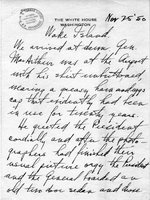 THE WHITE HOUSE
WASHINGTON
Nov 25 '50
Wake Island.
We arrived at dawn. Gen.
MacArthur was at the Airport
with his shirt unbuttoned,
wearing a greasy ham and eggs
cap that evidently had been
in use for twenty years.
He greeted the President
cordially and after the photo-
graphers had finished their
usual picture orgy the President
and the General boarded an
old two door sedan and drove